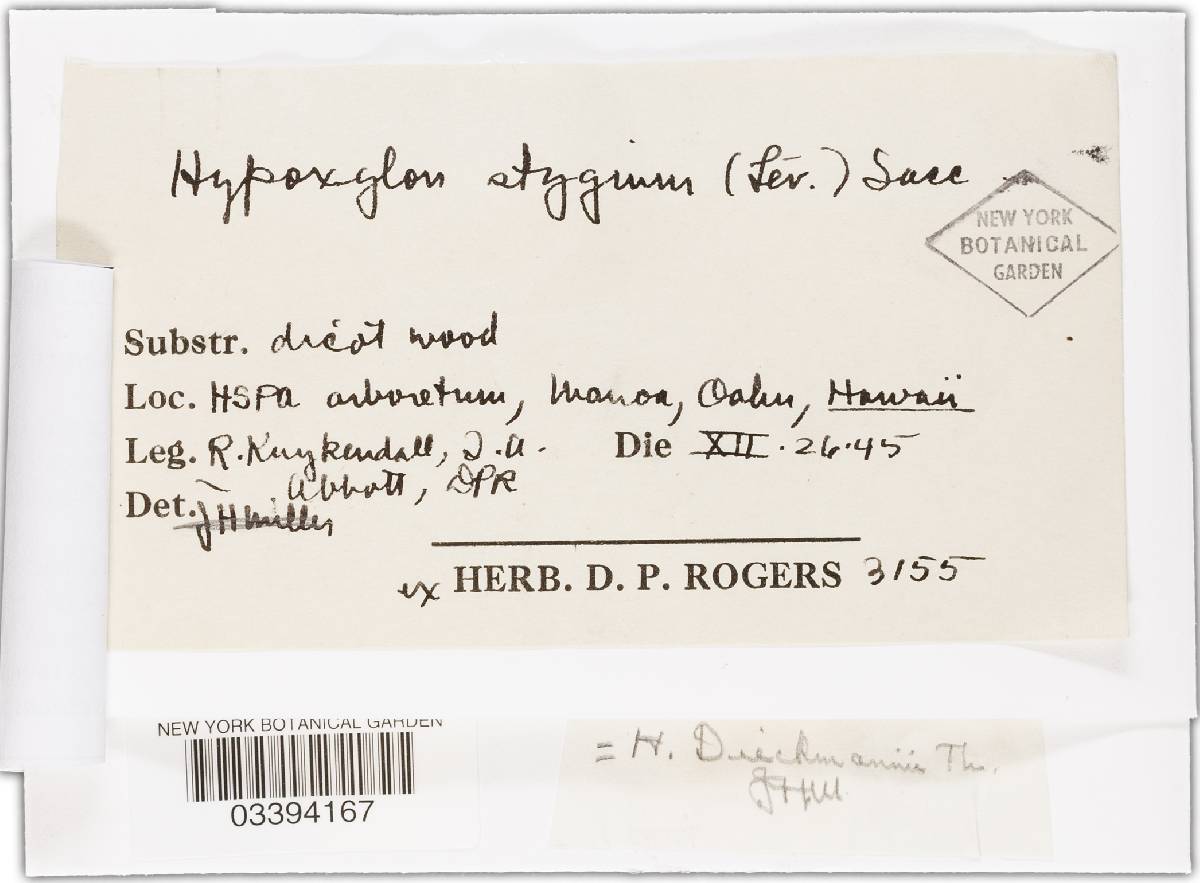 Hypoxylon stygium (Lév.) Sacc
NEW YORK
BOTANICAL
GARDEN
Substr. dicot wood
Loc. HSPA arboretum, Manoa, Oahu, Hawaii
Leg. R. Kuykendall, I. A. Die XII · 26 · 45
Abbott, DPR
Det. J H Miller
ex HERB. D. P. ROGERS 3155
NEW YORK BOTANICAL GARDEN
03394167
= H. Dieckmannii Th.
JHM